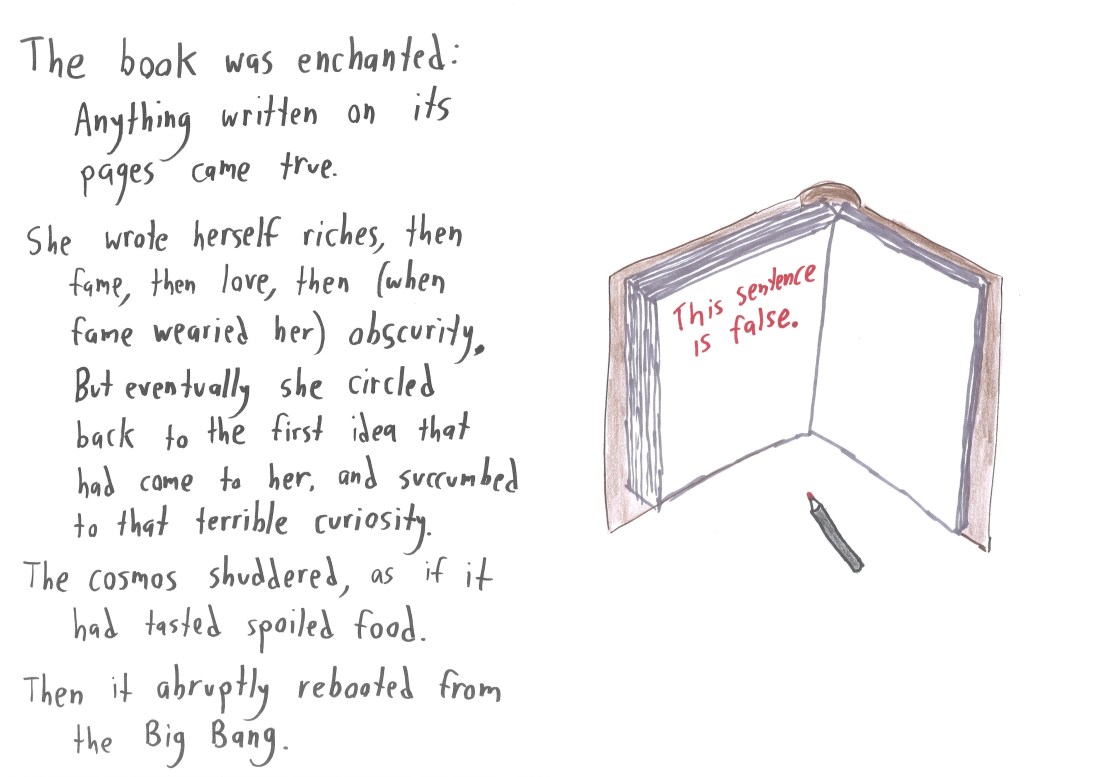 The book was enchanted:
Anything written on its
pages came true.
She wrote herself riches, then
fame, then love, then (when
fame wearied her) obscurity.
But eventually she circled
back to the first idea that
had come to her, and succumbed
to that terrible curiosity.
The cosmos shuddered, as if it
had tasted spoiled food.
Then it abruptly rebooted from
the Big Bang.
This sentence
is false.